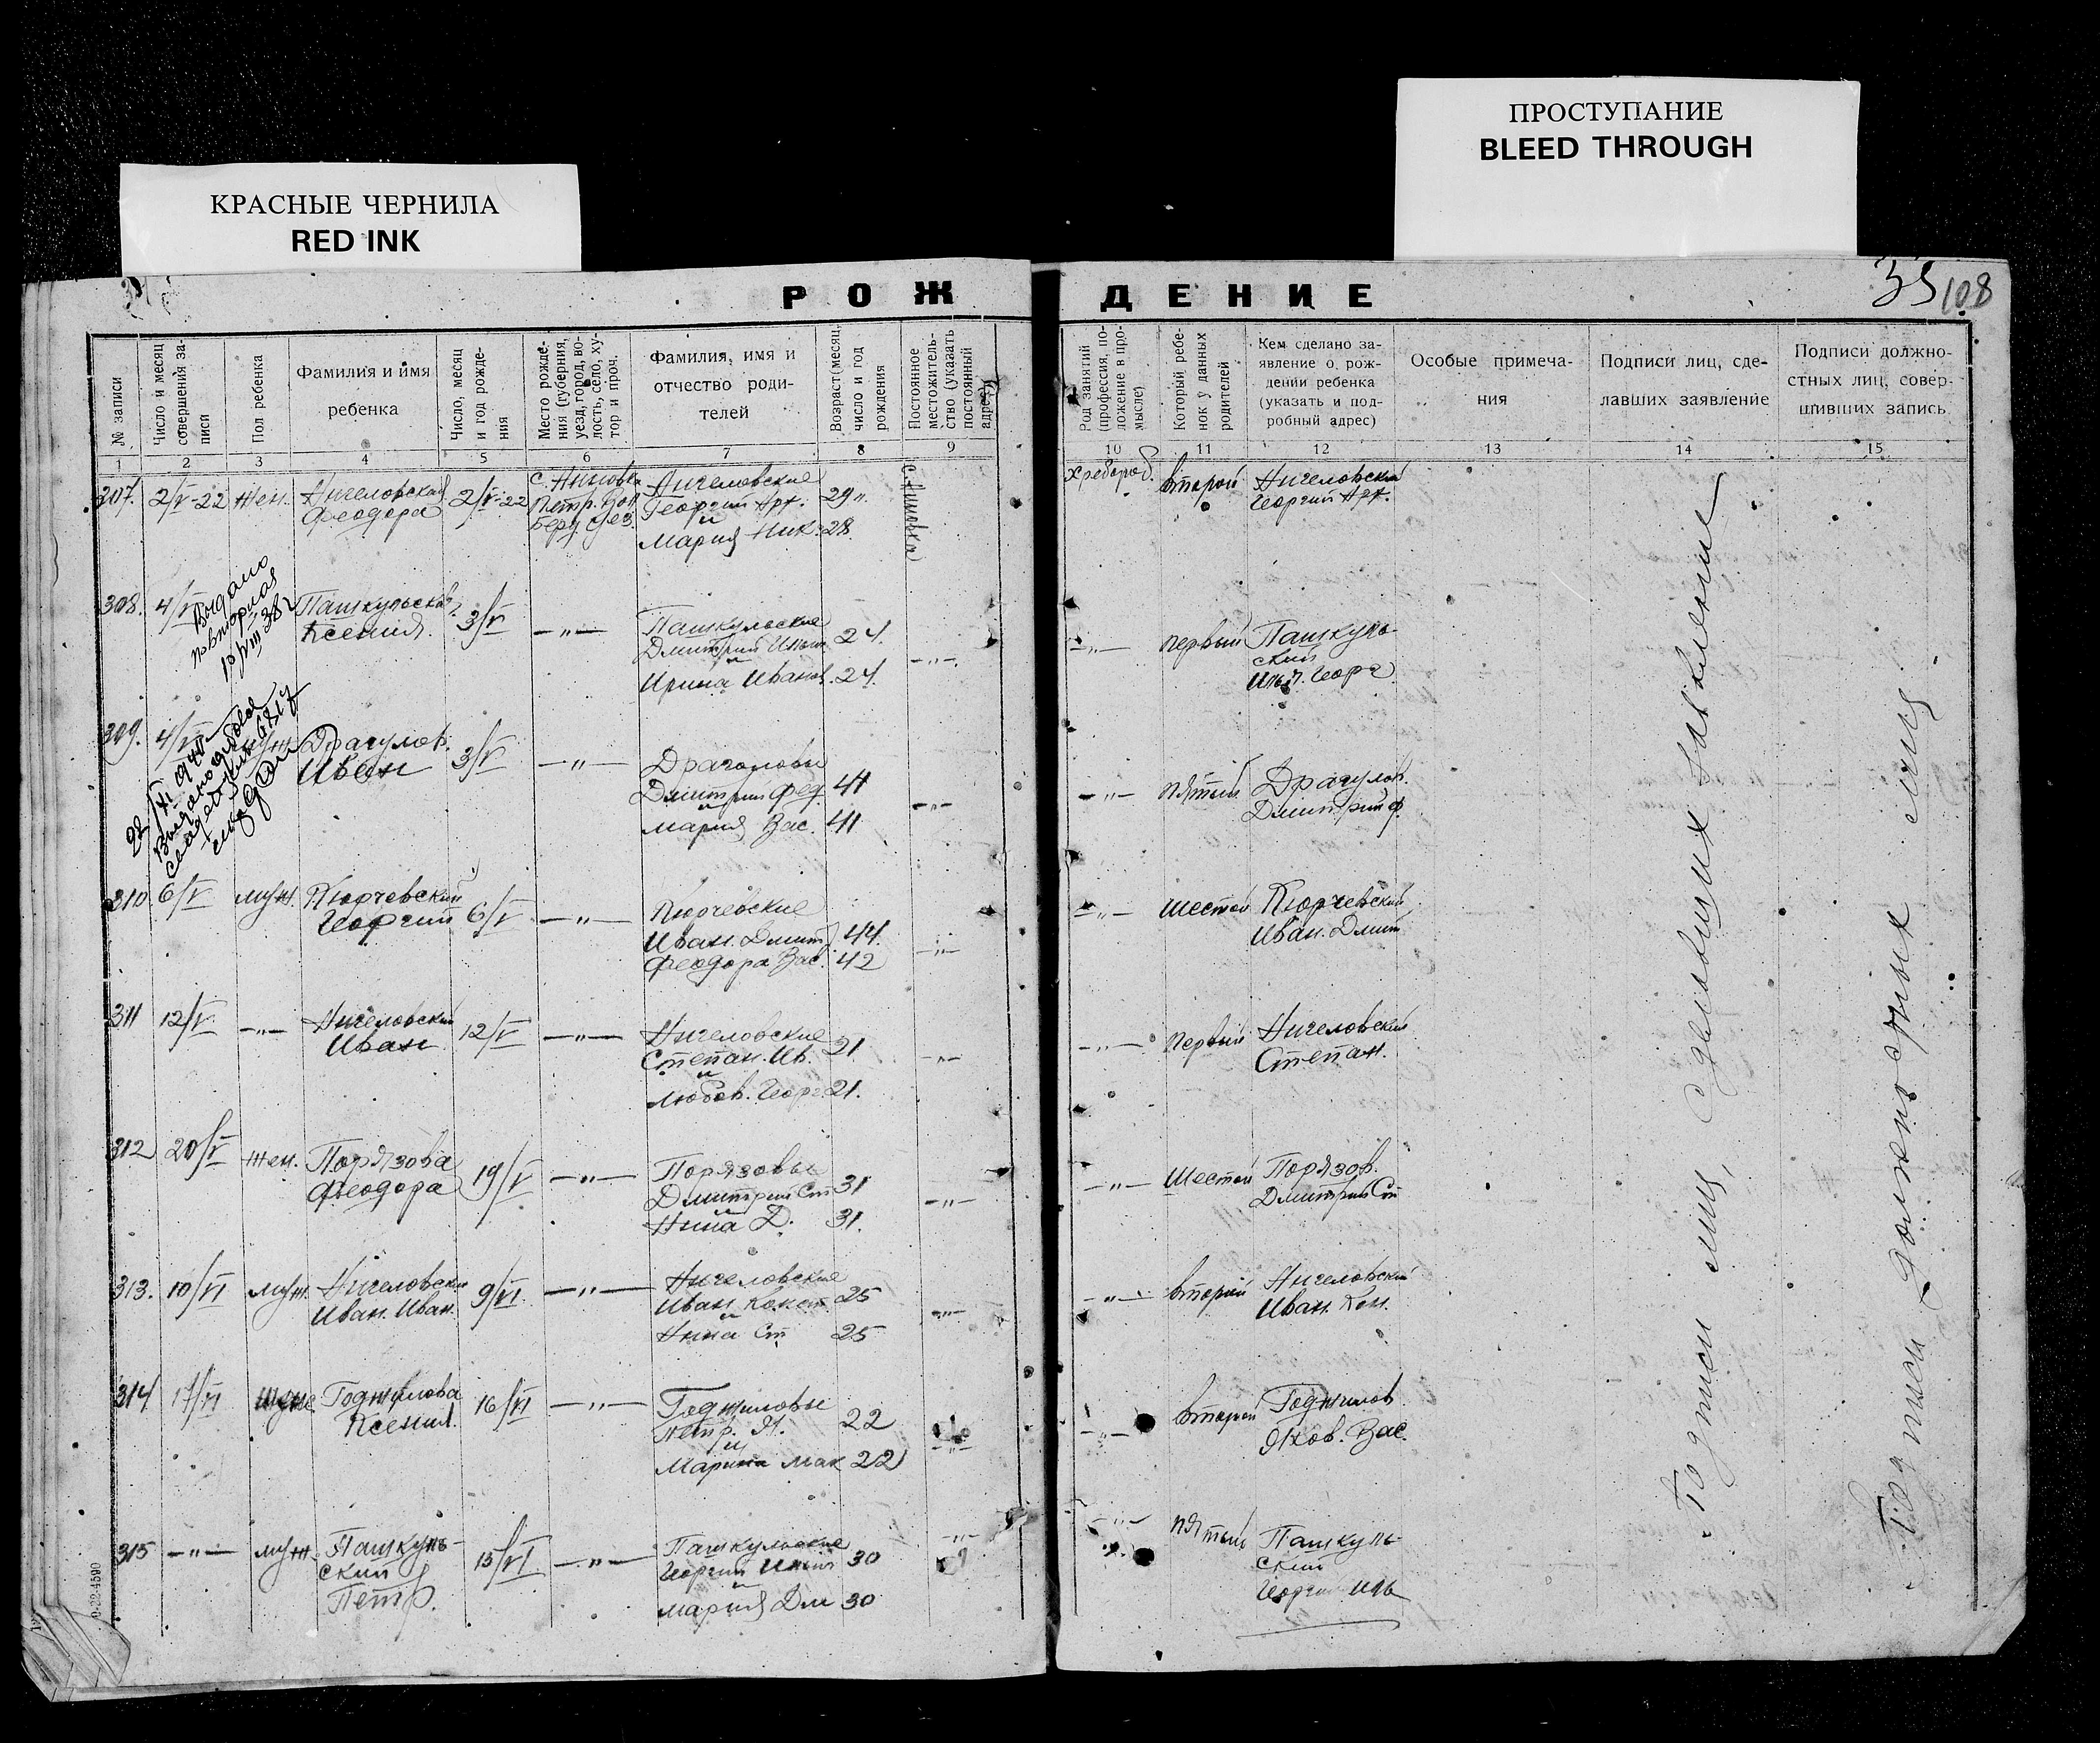 КРАСНЫЕ ЧЕРНИЛА
RED INK
ПРОСТУПАНИЕ
BLEED THROUGH
РОЖДЕНИЕ
35 108
№ записи
Число и месяц совершения записи
Пол ребенка
Фамилия и имя
ребенка
Число, месяц и год рождения
Место рождения (губерния, уезд, город, волость, село, хутор и проч.
Фамилия, имя и
отчество роди-
телей
Возраст (месяц, число и год рождения
Постоянное местожительство (указать постоянный адрес)
Род занятий (профессия, положение в промысле)
Который ребенок у данных родителей
Кем сделано за-
явление о рож-
дении ребенка
(указать и под-
робный адрес)
Особые примеча-
ния
Подписи лиц, сде-
лавших заявление
Подписи должно-
стных лиц, совер-
шивших запись
1 2 3 4 5 6 7 8 9 10 11 12 13 14 15
307. 2/V-22 Жен. Ангеловская 2/V-22 с. Анновка Ангеловские 29 хлебороб. второй Ангеловский
Феодора Петр. Вол. Георгий Арт. Георгий Арт.
Бер. уез. и
Мария Ник. 28
с. Анновка
308. 4/V Пашкульская 3/V —"— Пашкульские 24. —"— —"— первый Пашкуль-
Ксения Дмитрий Ильич ский
и Илья Георг
Ирина Иванов. 24.
Выдано
повторное
13/VIII 38 г
309. 4/V муж. Драгулов. 3/V —"— Драгаловы —"— —"— пятый Драгулов
Иван Дмитрий Фед. 41 Дмитрий Ф.
и
Мария Вас. 41
22/XI 1940
Выдано
310 6/V муж. Кюрчевский 6/V —"— Кюрчевские —"— —"— шестой Кюрчевский
Георгий Иван. Дмит. 44. Иван. Дмит
Феодора Вас. 42
311 12/V —"— Ангеловский 12/V —"— Ангеловские —"— —"— первый Ангеловский
Иван Степан. Ив. 21 Степан.
и
Любов. Георг 21.
312 20/V Жен. Порязова 19/V —"— Порязовы —"— —"— Шестой Порязов.
Феодора Дмитрий Ст 31 Дмитрий Ст
и
Нина Д. 31.
313. 10/VI муж. Ангеловский 9/VI —"— Ангеловские —"— —"— второй Ангеловский
Иван. Иван. Иван Конст. 25 Иван. Кон.
и
Нина Ст 25
314 17/VI Годжилова 16/VI —"— Годжиловы —"— —"— второй Годжилов
Ксения Петр. Я. 22 Яков. Вас.
и
Марина Мак 22
315 —"— муж. Пашкуль- 15/VI —"— Пашкульские —"— —"— пятый Пашкуль-
ский Георгий Ильич 30 ский
Петр. и Георги Иль
Мария Дм 30
Подписи лиц, сделавших заявление
Подписи должностных лиц